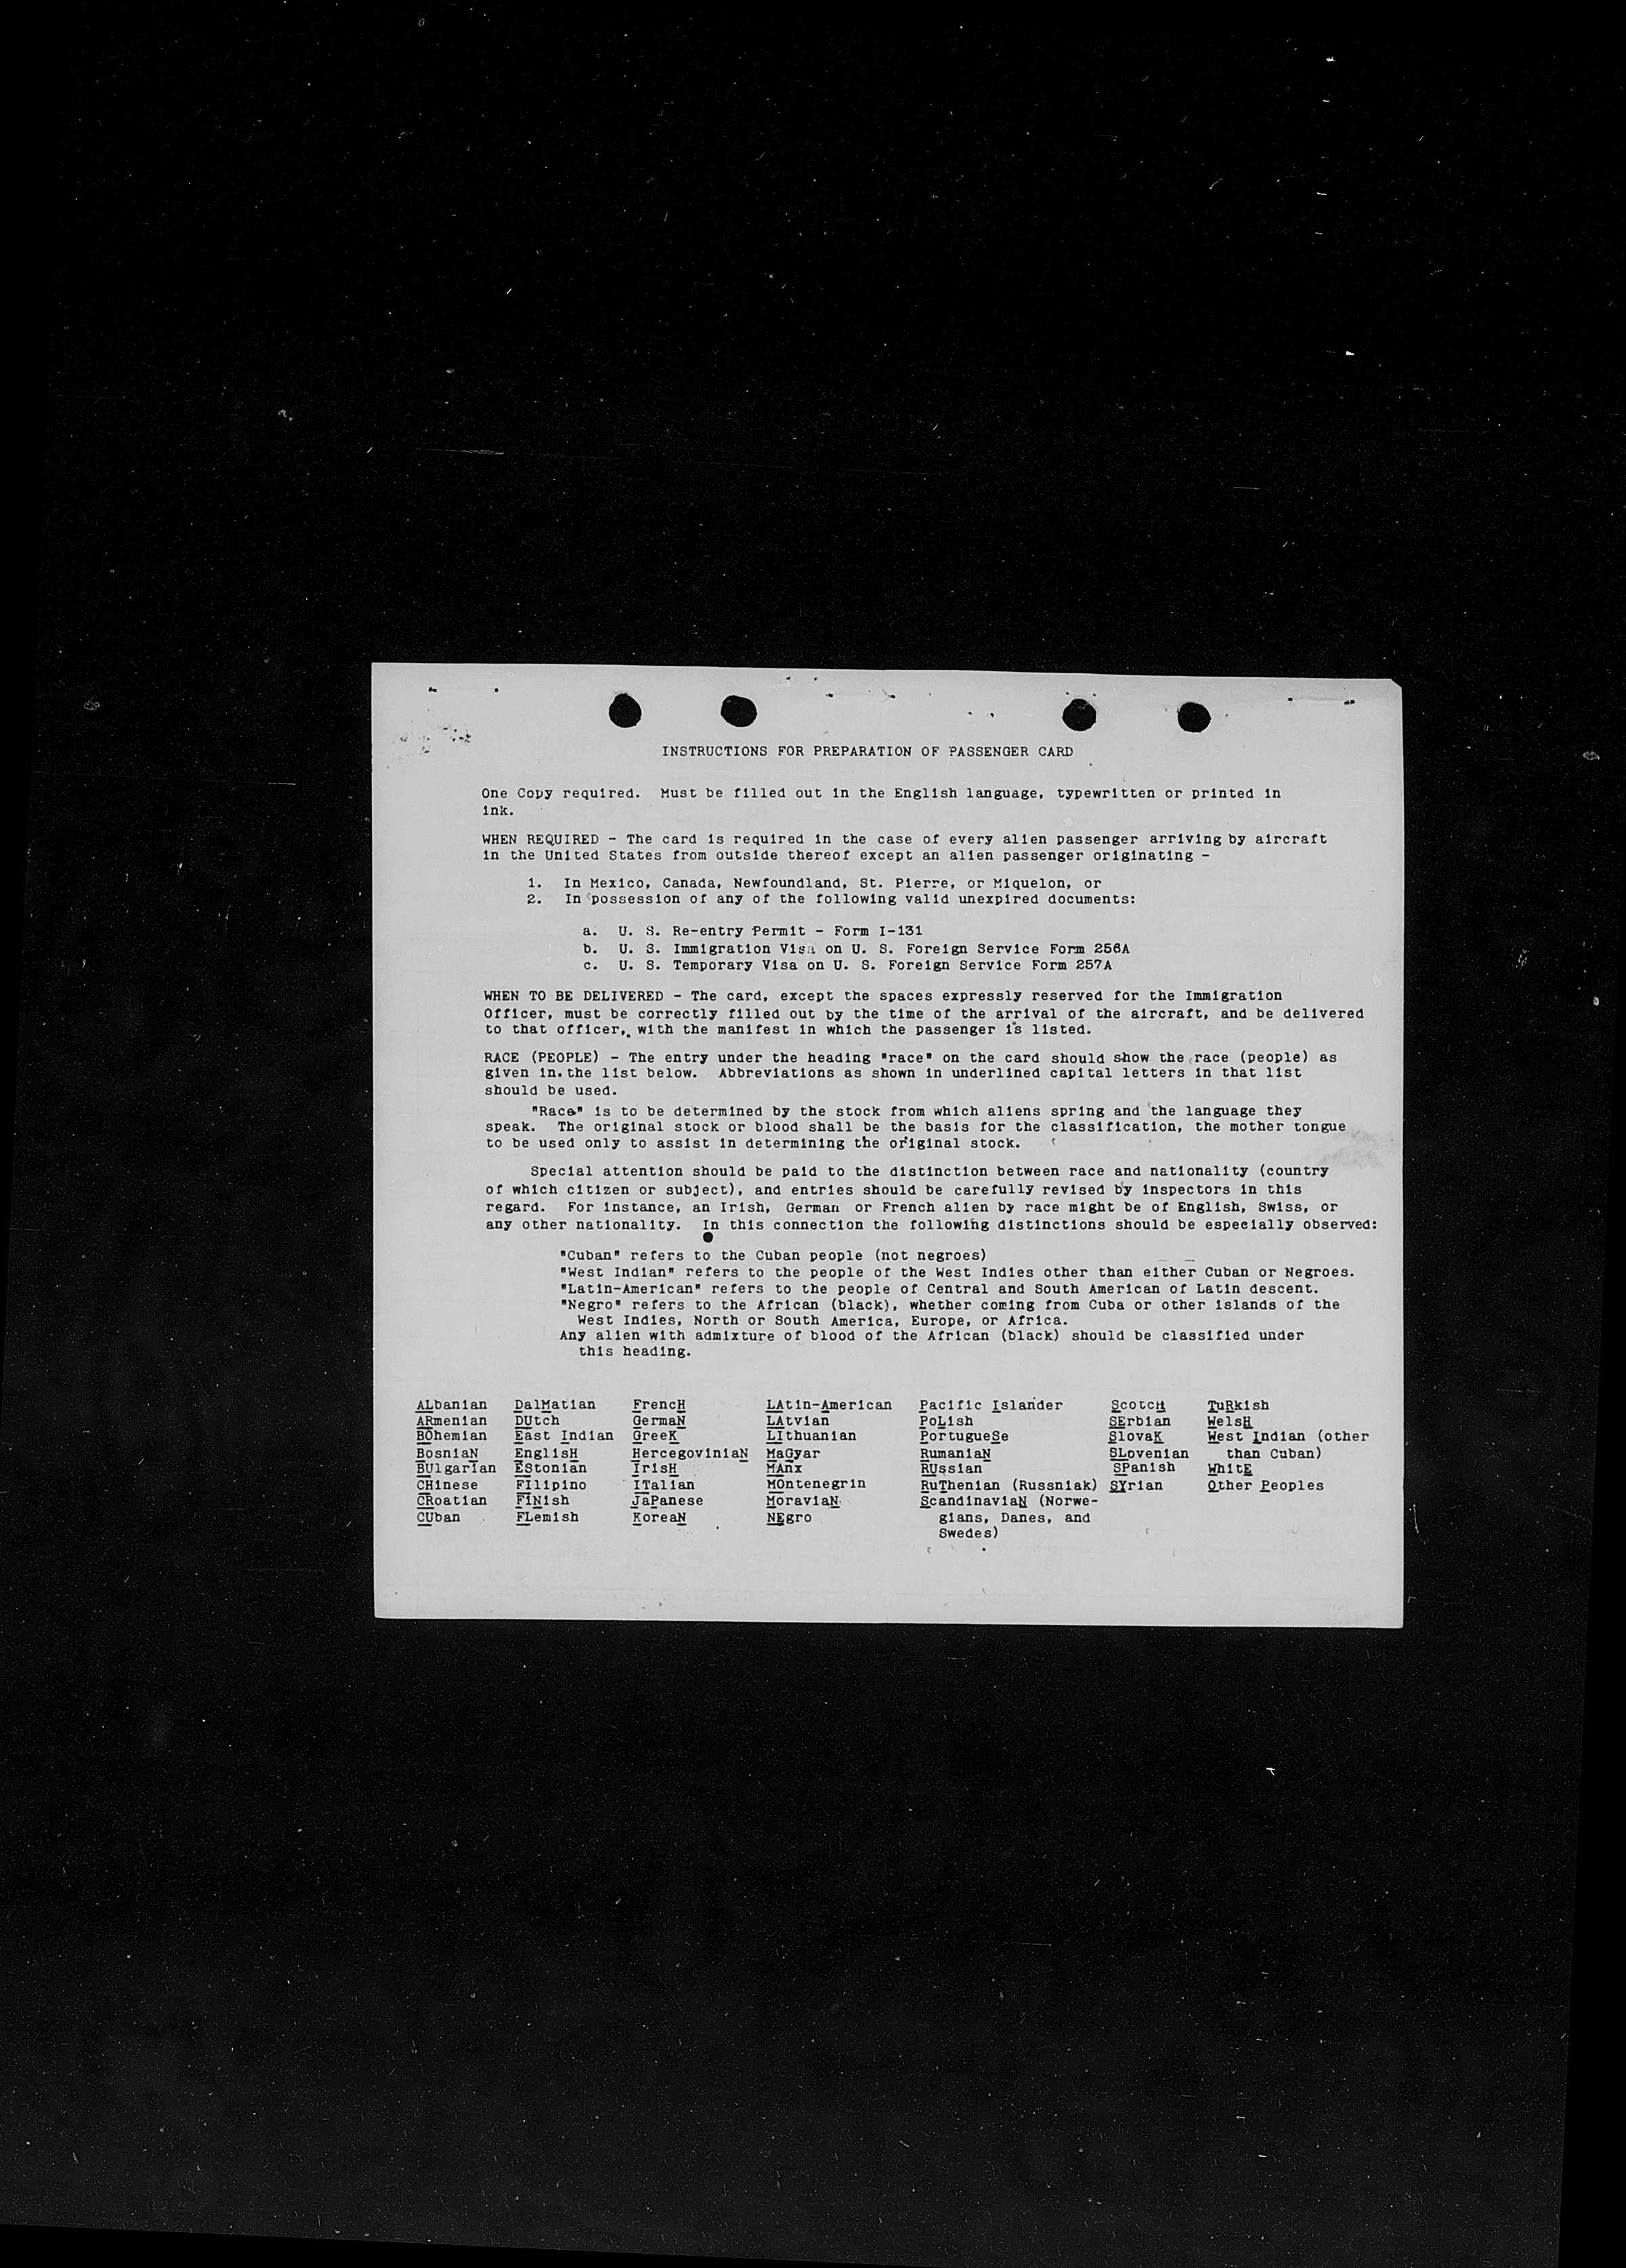 INSTRUCTIONS FOR PREPARATION OF PASSENGER CARD
One Copy required. Must be filled out in the English language, typewritten or printed in
ink.
WHEN REQUIRED - The card is required in the case of every alien passenger arriving by aircraft
in the United States from outside thereof except an alien passenger originating -
1. In Mexico, Canada, Newfoundland, St. Pierre, or Miquelon, or
2. In possession of any of the following valid unexpired documents:
a. U. S. Re-entry Permit - Form I-131
b. U. S. Immigration Visa on U. S. Foreign Service Form 256A
c. U. S. Temporary Visa on U. S. Foreign Service Form 257A
WHEN TO BE DELIVERED - The card, except the spaces expressly reserved for the Immigration
Officer, must be correctly filled out by the time of the arrival of the aircraft, and be delivered
to that officer, with the manifest in which the passenger is listed.
RACE (PEOPLE) - The entry under the heading "race" on the card should show the race (people) as
given in the list below. Abbreviations as shown in underlined capital letters in that list
should be used.
"Race" is to be determined by the stock from which aliens spring and the language they
speak. The original stock or blood shall be the basis for the classification, the mother tongue
to be used only to assist in determining the original stock.
Special attention should be paid to the distinction between race and nationality (country
of which citizen or subject), and entries should be carefully revised by inspectors in this
regard. For instance, an Irish, German or French alien by race might be of English, Swiss, or
any other nationality. In this connection the following distinctions should be especially observed:
"Cuban" refers to the Cuban people (not negroes)
"West Indian" refers to the people of the West Indies other than either Cuban or Negroes.
"Latin-American" refers to the people of Central and South American of Latin descent.
"Negro" refers to the African (black), whether coming from Cuba or other islands of the
West Indies, North or South America, Europe, or Africa.
Any alien with admixture of blood of the African (black) should be classified under
this heading.
ALbanian DalMatian FrencH LAtin-American Pacific Islander ScotcH TuRkish
ARmenian DUtch GermaN LAtvian PoLish SErbian WelsH
BOhemian East Indian GreeK LIthuanian PortugueSe SlovaK West Indian (other
BosniaN EnglisH HercegoviniaN MaGyar RumaniaN SLovenian than Cuban)
BUlgarian EStonian IrisH MAnx RUssian SPanish WhitE
CHinese FIlipino ITalian MOntenegrin RuThenian (Russniak) SYrian Other Peoples
CRoatian FiNish JaPanese MoraviaN ScandinaviaN (Norwe-
CUban FLemish KoreaN NEgro gians, Danes, and
Swedes)